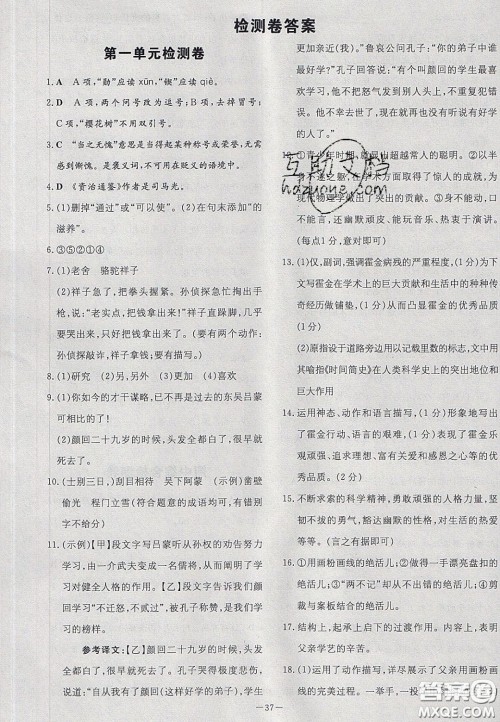 检测卷答案
第一单元检测卷
1. A A项,“勋”应读xūn,“锲”应读qiè。
2. A A项,两个问号改为逗号;B项,去掉冒号;
C项,“樱花树”不用双引号。
3. A “当之无愧”意思是当得起某种称号或荣誉,无
感到惭愧。是褒义词,不可用在贬义的语境中。
4. A 《资治通鉴》作者是司马光。
5. (1)删掉“通过”或“可以使”。(2)在句末添加“的
滋养”。
6. ③⑤②①④
7. (1)老舍 骆驼祥子
(2)祥子急了,把拳头握紧。孙侦探急忙掏出手
枪,说:“先生,拿出来吧!”祥子直跺脚,几乎
要哭出来,只好把钱拿出来了。(要有两个动作:
孙侦探敲诈,祥子拿钱;要有描写。)
8. (1)研究 (2)另,另外 (3)更加 (4)喜欢
9. (1)你如今的才干谋略,已不再是过去的东吴吕蒙
可相比的了!
(2)颜回二十九岁的时候,头发全都白了,很早就
死去了。
10. (士别三日,)刮目相待 吴下阿蒙 (示例)凿壁
偷光 程门立雪(符合题意的成语均可,有错别
字不给分)
11. (示例)【甲】段文字写吕蒙听从孙权的劝告努力
学习,由一介武夫变成一名儒将,从中我体会到了
学习对健全人格的作用。【乙】段文字告诉我们颜
回“不迁怒,不贰过”,被孔子称赞,是我们学习
的榜样。
参考译文:【乙】颜回二十九岁的时候,头
发全都白了,很早就死去了。孔子哭得极度悲伤,
说道:“自从我有了颜回(这样好学的弟子),学生
更加亲近(我)。”鲁哀公问孔子:“你的弟子中谁
最好学?”孔子回答说:“有个叫颜回的学生最喜
欢学习,他从不把怒气发到别人头上,不重犯错
误。他不幸去世了,现在也就没有像颜回那样好学
的人了。”
12. ①青少年时期,就显出超越常人的聪明。②以
不凡之躯,在学术方面取得了惊人的成就,为
现代物理学做出了突出的贡献。③身不能动,口
不能言,还幽默顽皮,能玩音乐,热衷于表演。
(每点1分,意对即可)
13. (1)仅,副词,强调霍金病残的严重程度,为下
文写霍金在学术上的巨大贡献和生活中的种种
传奇经历做铺垫,从而突出了霍金的优秀品质
(1分)
(2)原指设于道路旁边用以记载里数的标志,文中用
其喻指《时间简史》在人类科学史上的突出地位和
巨大的作用
14. 运用神态、动作和语言描写,(1分)形象地写
出了霍金动人的情态,(1分)表现了霍金幽默
诙谐、追求理想、富有激情、热爱生活的优秀品
质。(2分)
15. 不断求索的科学精神,勇敢顽强的人格力量,坚
韧不拔的努力,受尽磨难而坚忍不屈的性格,坚
强、豁达和幽默的性格,伟大的人格魅力。
16. ①用画粉画线的绝活儿;②做得一手漂亮盘扣
的绝活儿;③“两不记”却从不出错的绝活儿;④裁
剪与案板结合的绝活儿。
17. 结构上,起承上启下的过渡作用;内容上,表现了
父亲学艺的辛苦。
18. (1)运用了动作描写,详尽展示了父亲用画粉画
线的完美过程。一举手,一投足
37
互助文档
hdzuone.com
答案圈
MXQE.COM